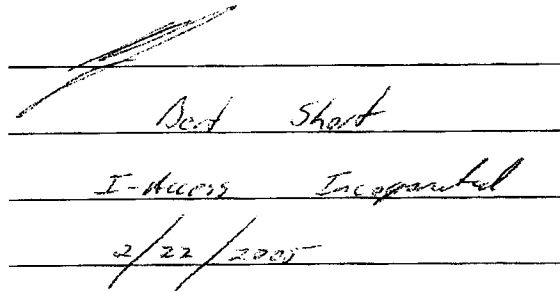 Short
I-Access Incorporated
2/22/2005